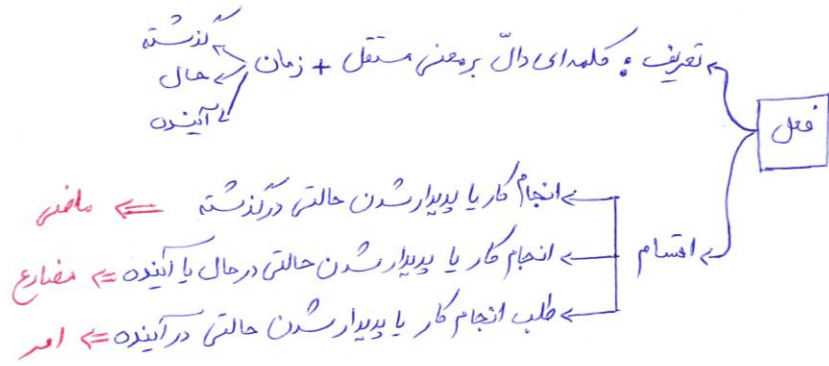 فعل
تعریف : کلمه‌ای دالّ بر معنی مستقل + زمان
گذشته
حال
آینده
اقسام
انجام کار یا پدیدار شدن حالتی در گذشته ⇐ ماضی
انجام کار یا پدیدار شدن حالتی در حال یا آینده ⇐ مضارع
طلب انجام کار یا پدیدار شدن حالتی در آینده ⇐ امر